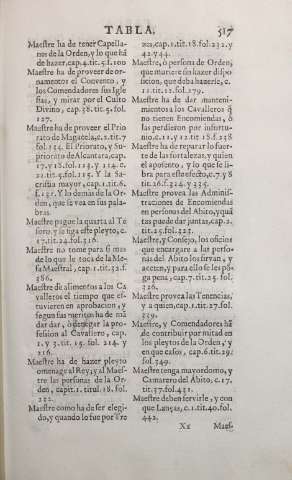 TABLA.
517
Maestre ha de tener Capella-
nes de la Orden, y lo que há
de hazer, cap. 4. tit. 5. f. 100
Maestre ha de proveer de or-
namentos el Convento, y
los Comendadores sus Igle
sias, y mirar por el Culto
Divino, cap. 38. tit. 5. fol.
127.
Maestre ha de proveer el Prio
rato de Magacela, c. 2. tit. 7
fol. 154. El Priorato, y Su-
priorato de Alcantara, cap.
17. y 18. fol. 113. y 114. c.
21. tit. 5. fol. 115. Y la Sa-
cristia mayor, cap. 1. tit. 6.
Y lo demàs de la Or
den, que se vea en sus pala-
bras.
Maestre pague la quarta al Te
soro, y se siga este pleyto, c.
17. tit. 24. fol. 316.
Maestre no tome para si mas
de lo que le toca de la Me-
sa Maestral, cap. 1. tit. 32. f.
386.
Maestre dè alimentos a los Ca
valleros el tiempo que es-
tuvieren en aprobacion, y
segun sus meritos ha de mã
dar dar, ò denegar la pro-
fession al Cavallero, cap.
1. y 3. tit. 15. fol. 214. y
216.
Maestre ha de hazer pleyto
omenage al Rey, y al Maes-
tre las personas de la Or-
den, capit. 1. titul. 18. fol.
232.
Maestre como ha de ser elegi-
do, y quando lo fue por Pro
zes, cap. 1. tit. 18. fol. 232. y
42. y 44.
Maestre, ò persona de Orden,
que muriere sin hazer dispo-
sicion, que deba hazerse, c.
11. tit. 12. fol. 179.
Maestre ha de dar manteni-
mientos a los Cavalleros q̃
no tienen Encomiendas, ò
las perdieron por infortu-
nio, c. 11. y 12. tit. 18. f. 238
Maestre ha de reparar lo fuer-
te de las fortalezas, y quien
el aposento, y lo que se li-
bra para este efecto, c. 7. y 8
tit. 26. f. 324. y 335.
Maestre provea las Adminis-
traciones de Encomiendas
en personas del Abito, y quã
tas puede dar juntas, cap. 2.
tit. 25. fol. 323.
Maestre, y Consejo, los oficios
que encargare a las perso-
nas del Abito los sirvan, y
aceten, y para ello se les põ
ga pena, cap. 7. tit. 25. fol.
326.
Maestre provea las Tenencias,
y a quien, cap. 1. tit. 27. fol.
339.
Maestre, y Comendadores hã
de contribuir por mitad en
los pleytos de la Orden, y
en que casos, cap. 6. tit. 29.
fol. 349.
Maestre tenga mayordomo, y
Camarero del Abito, c. 17.
tit. 37. fol. 431.
Maestre deben servirle, y con
que Lanças, c. 1. tit. 40. fol.
442.
Xx
Maes-